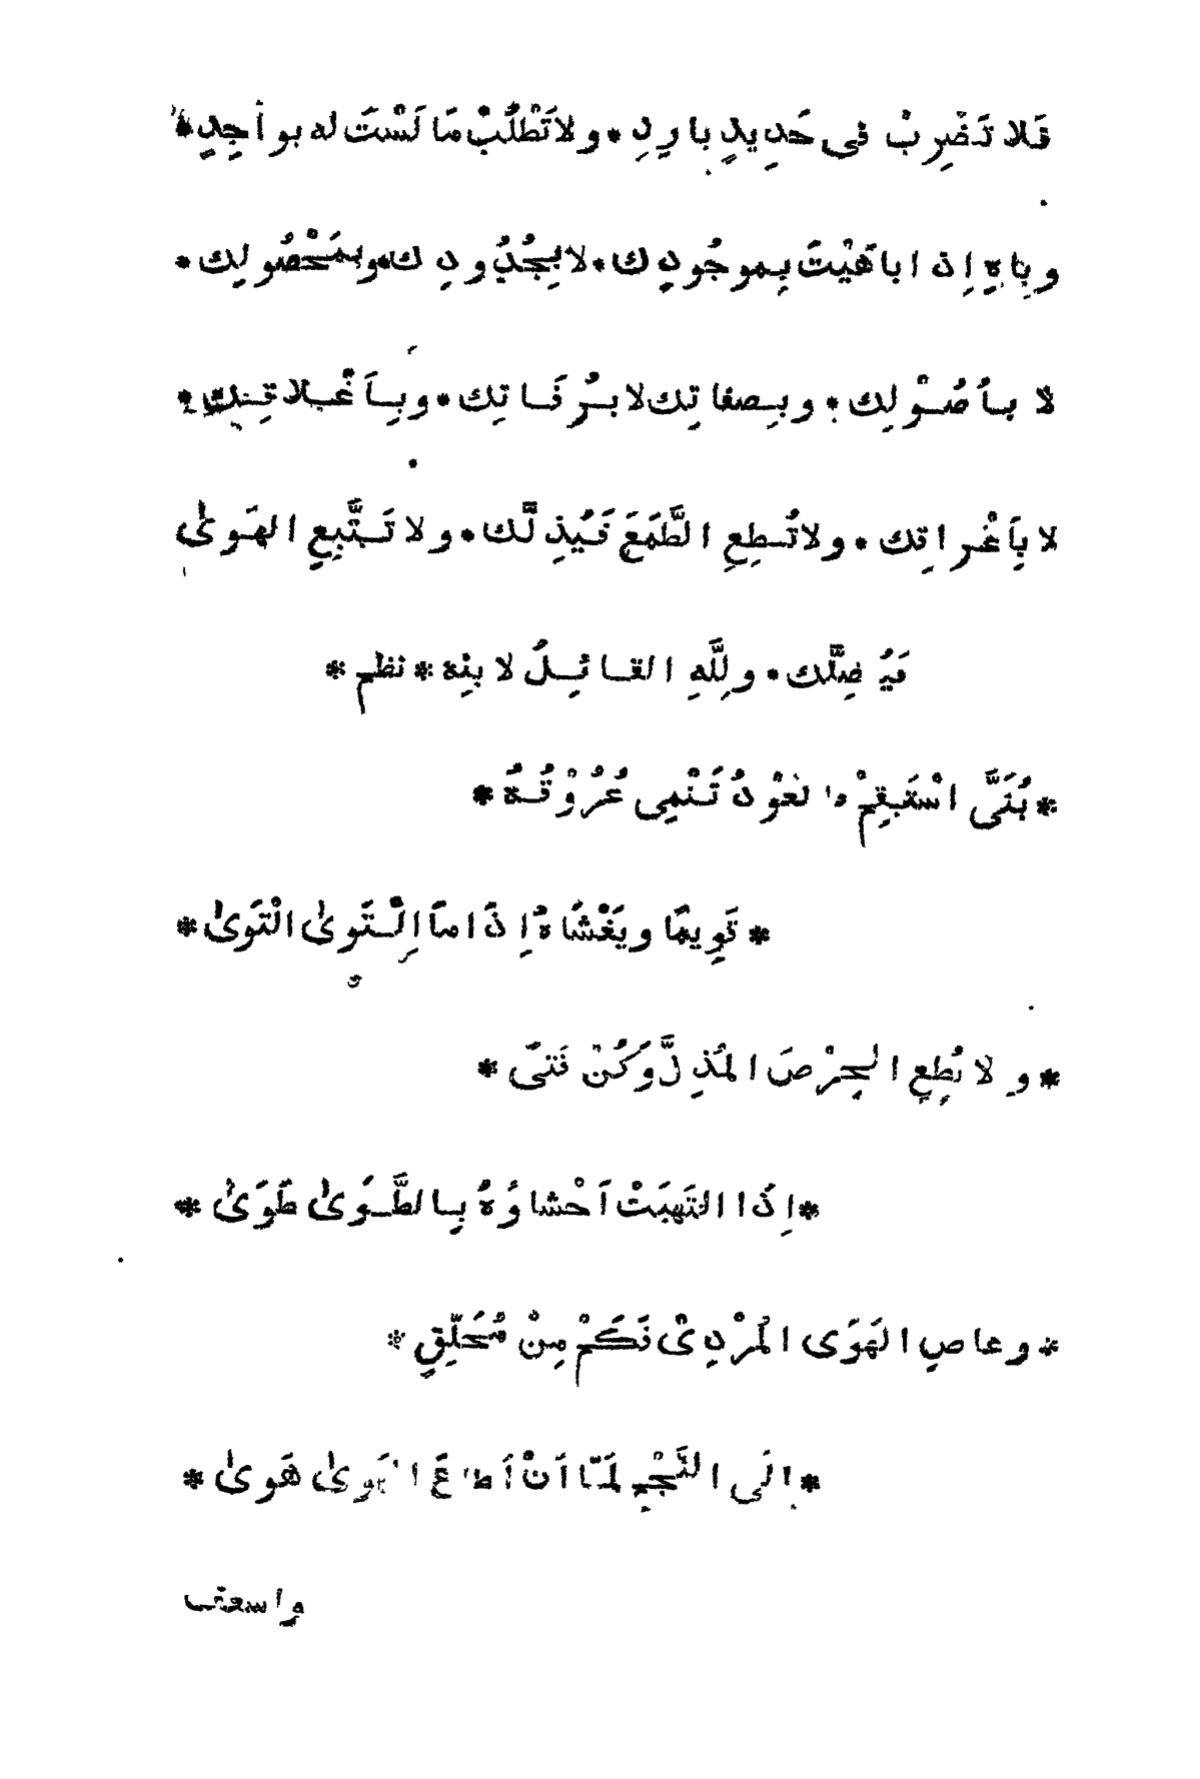 فَلا تَضْرِبْ فى حَدِيدٍ بارِدٍ * ولا تَطْلُبْ مَا لَسْتَ له بواجِدٍ *
وباهِ إِذا باهَيْتَ بِموجُودِك * لا بِجُدُودِك * وبِمَحْصُولِك *
لا بأُصُوْلِك * وبِصفاتِك لا بِرُفَاتِك * وبِأَعْلاقِك *
لا بِأَعْراقِك * ولا تُطِعِ الطَّمَعَ فَيُذِلَّك * ولا تَتَّبِعِ الهَوىٰ
فَيُضِلَّك * ولِلّهِ القائِلُ لابنِه * نظم *
* بُنَىَّ اسْتَقِمْ فالعُوْدُ تَنْمِى عُرُوْقُهُ *
* قَوِيمًا ويَغْشَاهُ إِذَا مَا الْتَوىٰ التَّوَىٰ *
* ولا تُطِعِ الحِرْصَ المُذِلَّ وَكُنْ فَتىً *
* إِذَا التَهَبَتْ أَحْشاؤُهُ بِالطَّوَىٰ طَوَىٰ *
* وعاصِ الهَوَى المُرْدِىْ فَكَمْ مِنْ مُحَلِّقٍ *
* إِلَى النَّجْمِ لَمّا أَنْ أَطاعَ الهَوىٰ هَوىٰ *
واسعف